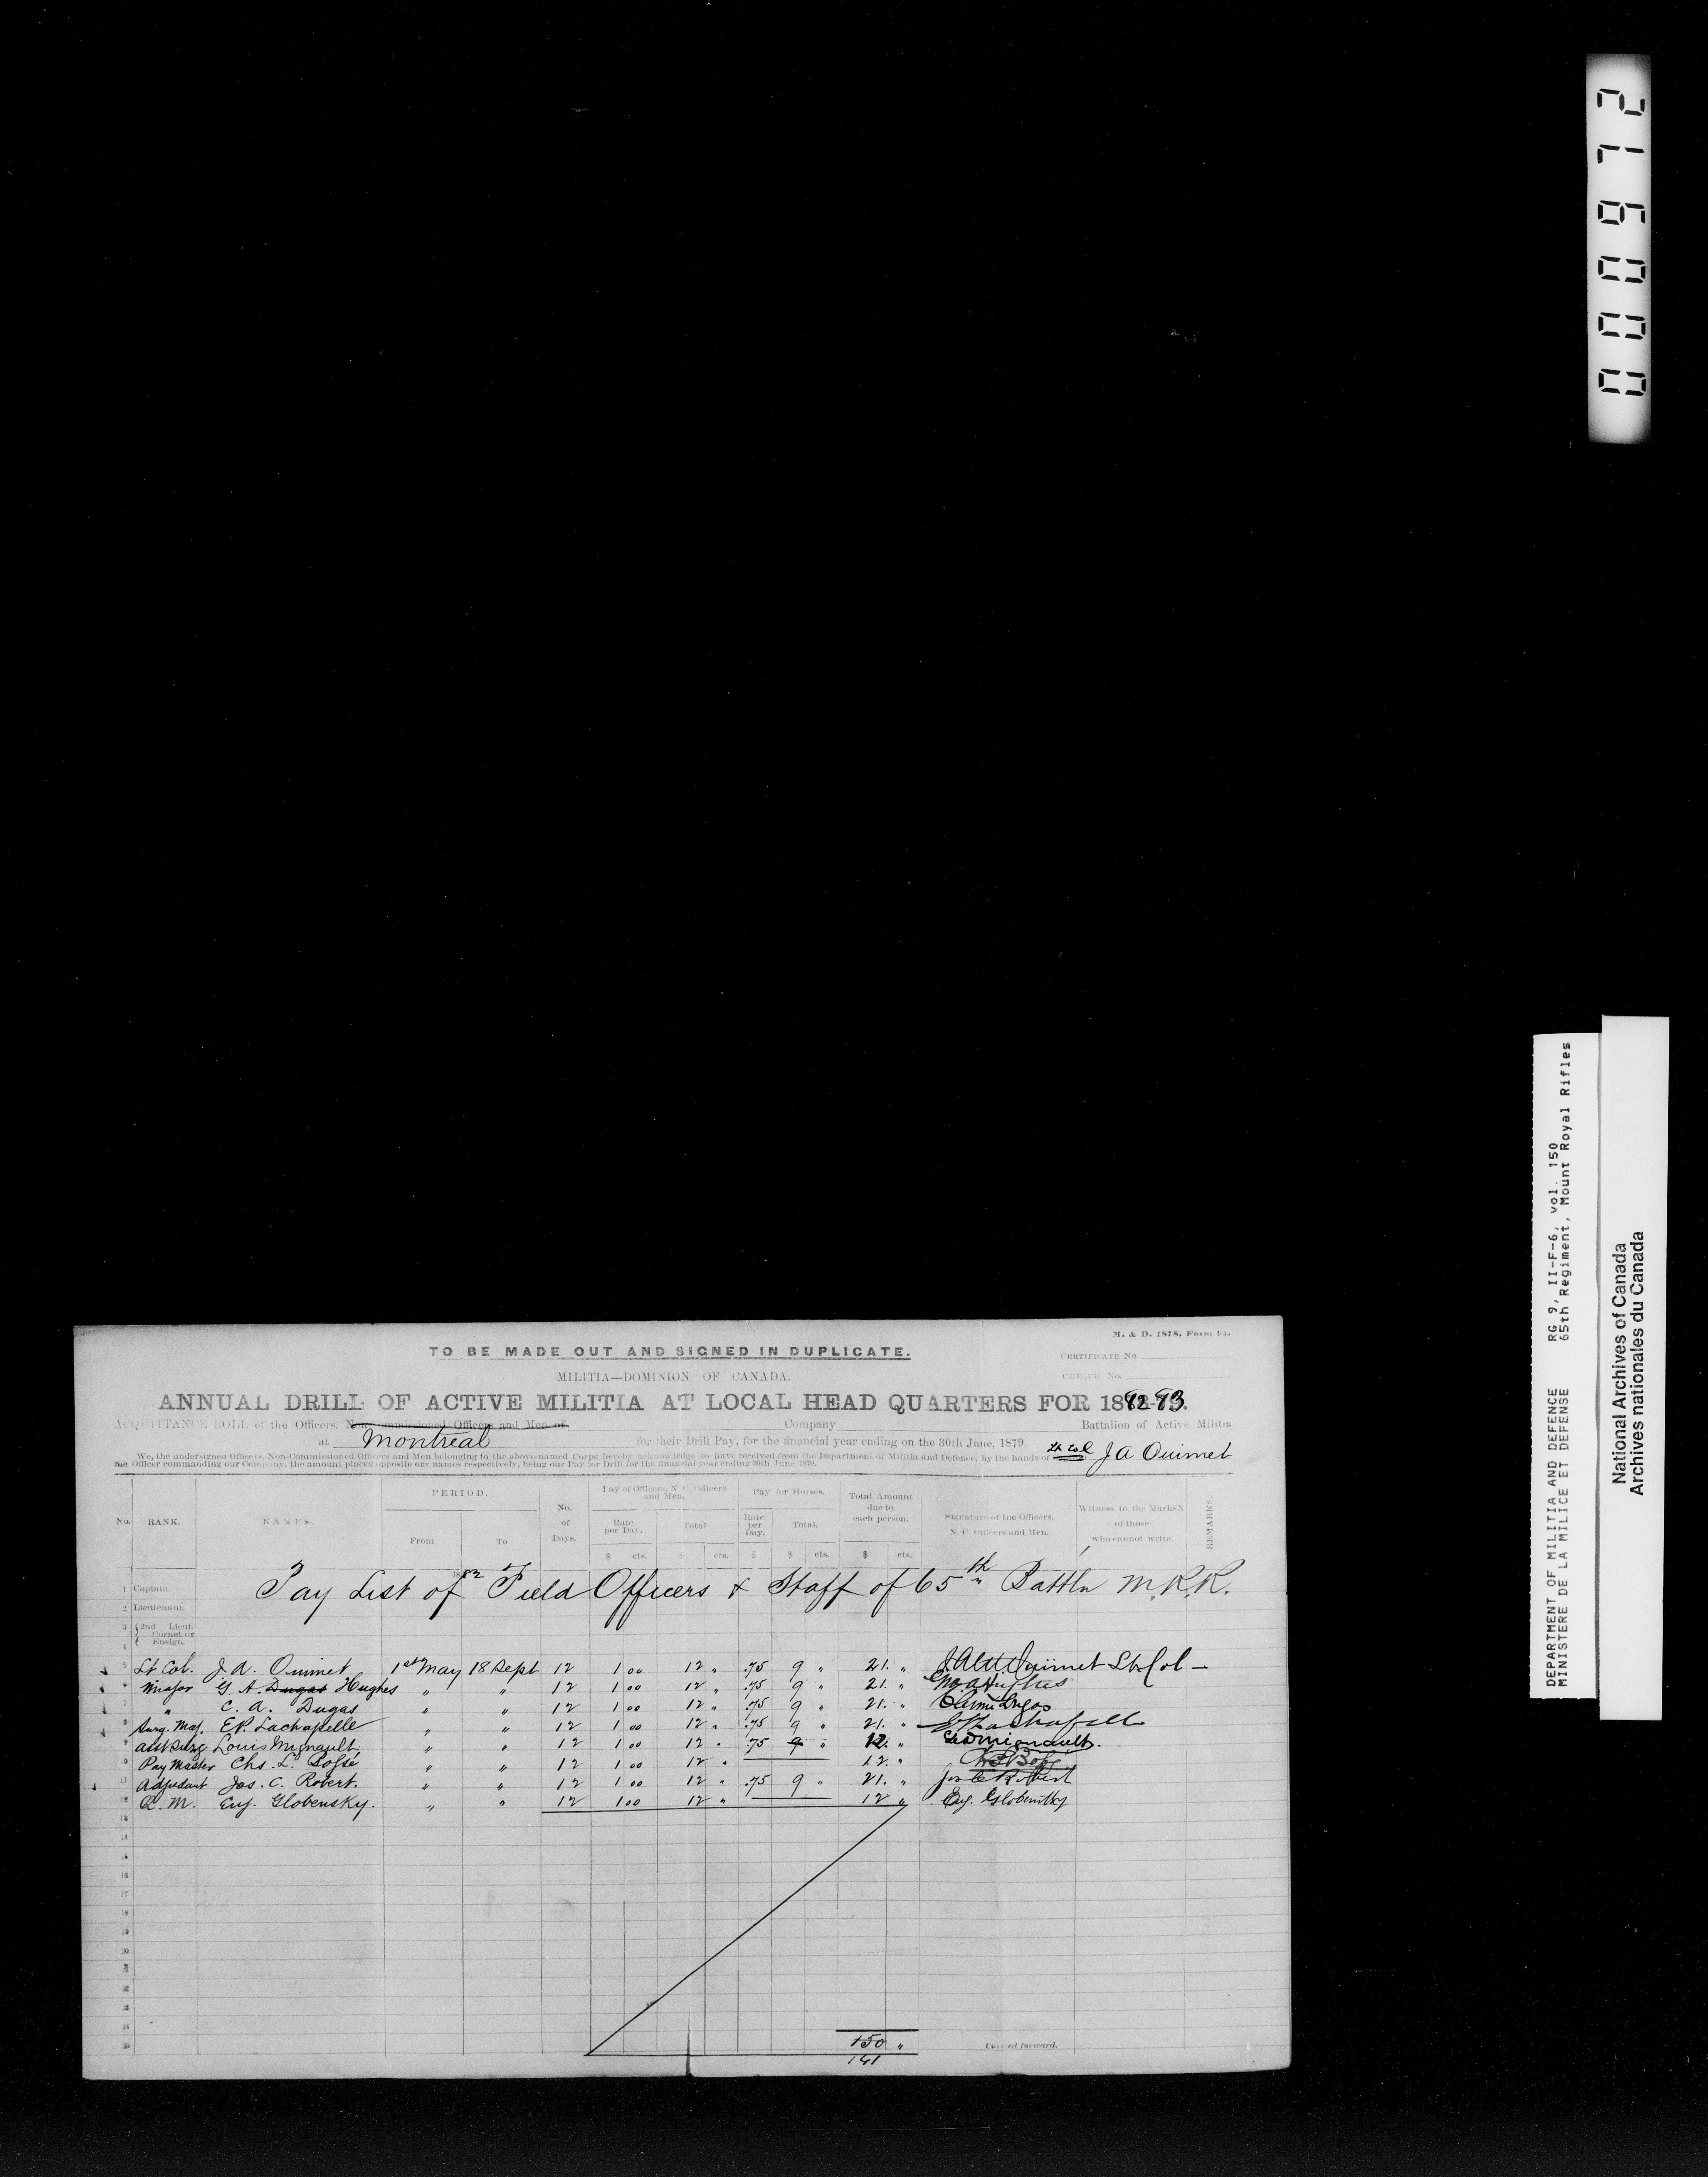 000972
DEPARTMENT OF MILITIA AND DEFENCE RG 9, II-F-6, vol. 150
MINISTERE DE LA MILICE ET DEFENSE 65th Regiment, Mount Royal Rifles
National Archives of Canada
Archives nationales du Canada
M. & D. 1878, Form
TO BE MADE OUT AND SIGNED IN DUPLICATE.
CERTIFICATE No.
MILITIA—DOMINION OF CANADA.
CHEQUE No.
ANNUAL DRILL OF ACTIVE MILITIA AT LOCAL HEAD QUARTERS FOR 1882-83.
ACQUITTANCE ROLL of the Officers, Non-Commissioned Officers and Men of Company Battalion of Active Militia
at Montreal for their Drill Pay, for the financial year ending on the 30th June, 1879.
We, the undersigned Officers, Non-Commissioned Officers and Men belonging to the above-named Corps hereby acknowledge to have received from the Department of Militia and Defence, by the hands of Lt Col J A Ouimet
the Officer commanding our Company, the amount placed opposite our names respectively, being our Pay for Drill for the financial year ending 30th June 1879.
No. RANK. NAMES. PERIOD. From To No. of Days. Pay of Officers, N. C. Officers and Men. Rate per Day. Total Pay for Horses. Rate per Day. Total. Total Amount due to each person. Signature of the Officers, N. C. Officers and Men. Witness to the Marks X of those who cannot write. REMARKS.
$ cts. $ cts. $ $ cts. $ cts.
1882
1 Captain. Pay List of Field Officers & Staff of 65th Battln M.R.R.
2 Lieutenant.
3 2nd Lieut. Cornet or Ensign.
4
5 Lt Col. J. A. Ouimet 1st May 18 Sept 12 1 00 12 " .75 9 " 21. " Ouimet Lt Col
6 Major G. A. Dugas Hughes " " 12 1 00 12 " .75 9 " 21. " Hughes
7 " C. A. Dugas " " 12 1 00 12 " .75 9 " 21. " Dugas
8 Surg. Maj. E. P. Lachapelle " " 12 1 00 12 " .75 9 " 21. " Lachapelle
9 Asst Surg Louis Mignault " " 12 1 00 12 " .75 9 " 12. " Mignault.
10 Pay Master Chs. L. Bossé " " 12 1 00 12 " 12. "
11 Adjudant Jos. C. Robert. " " 12 1 00 12 " .75 9 " 21. " Jos C Robert
12 Q. M. Eug. Globensky. " " 12 1 00 12 " 12 " Eug. Globensky
13
16
17
18
19
20
150 "
Carried forward.
141